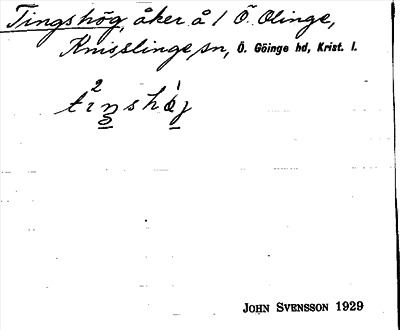 Tingshög, åker å 1 Ö. Olinge,
Knisslinge sn, Ö. Göinge hd, Krist. l.
JOHN SVENSSON 1929